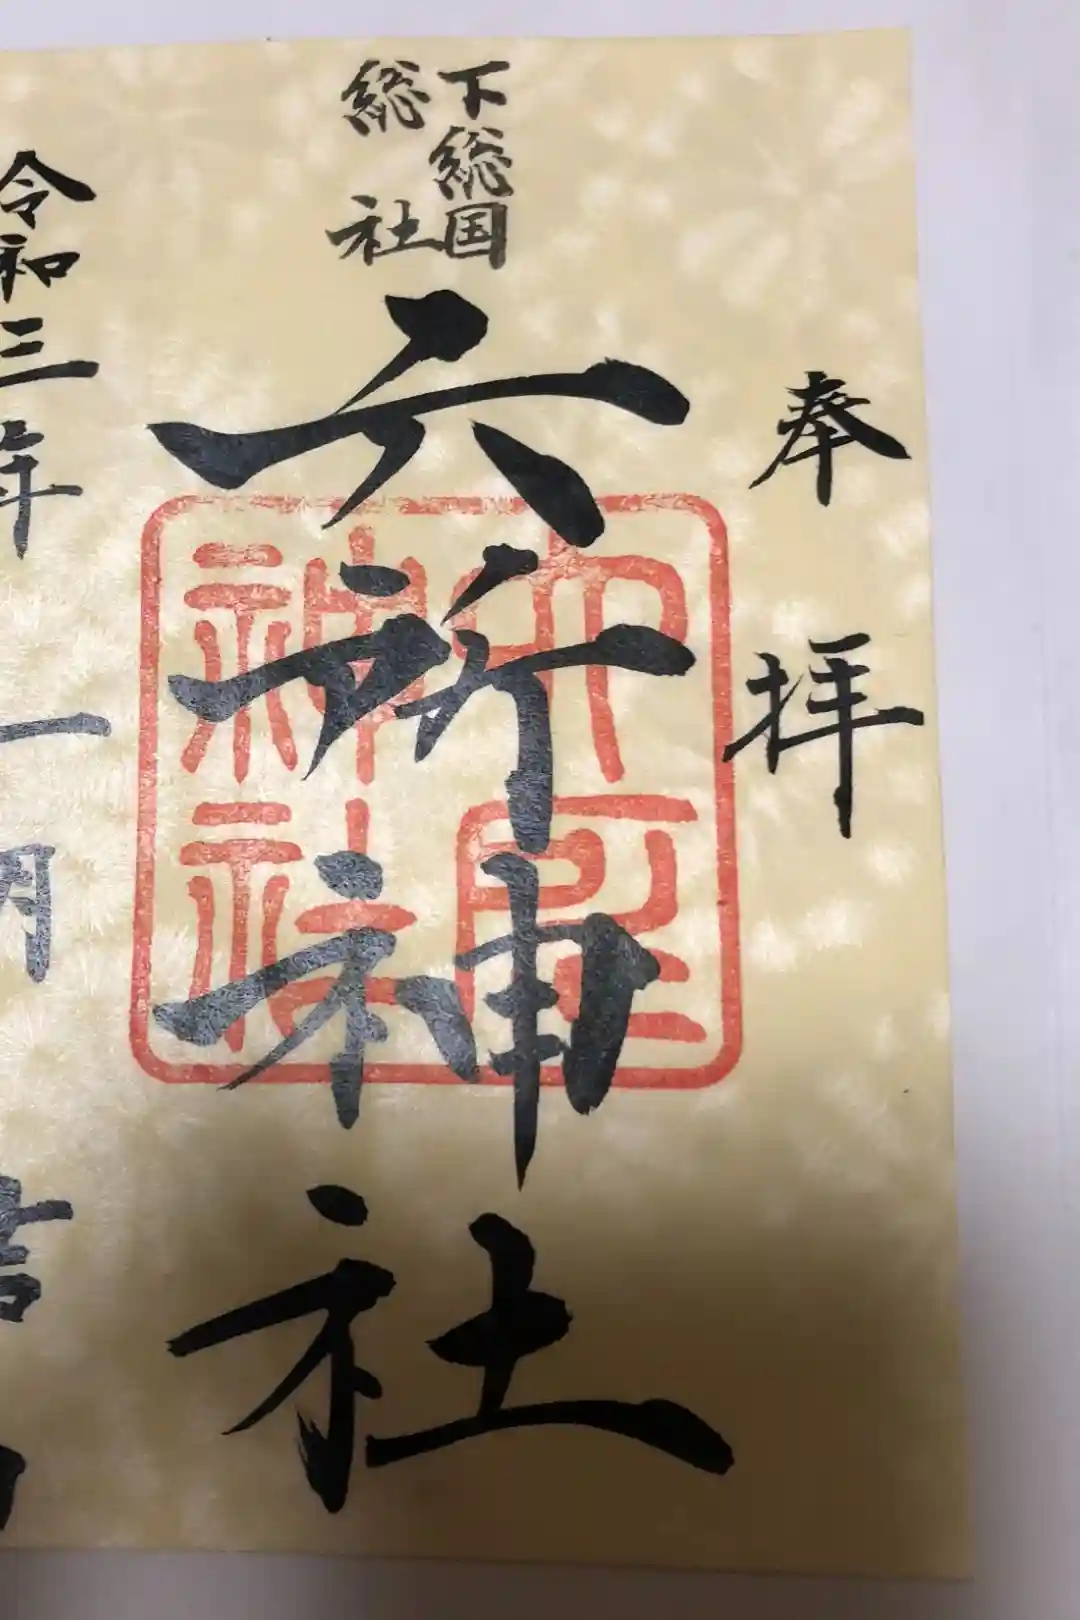 奉拝
下総国
総社
六所神社
六所
神社
令和三年一月吉日